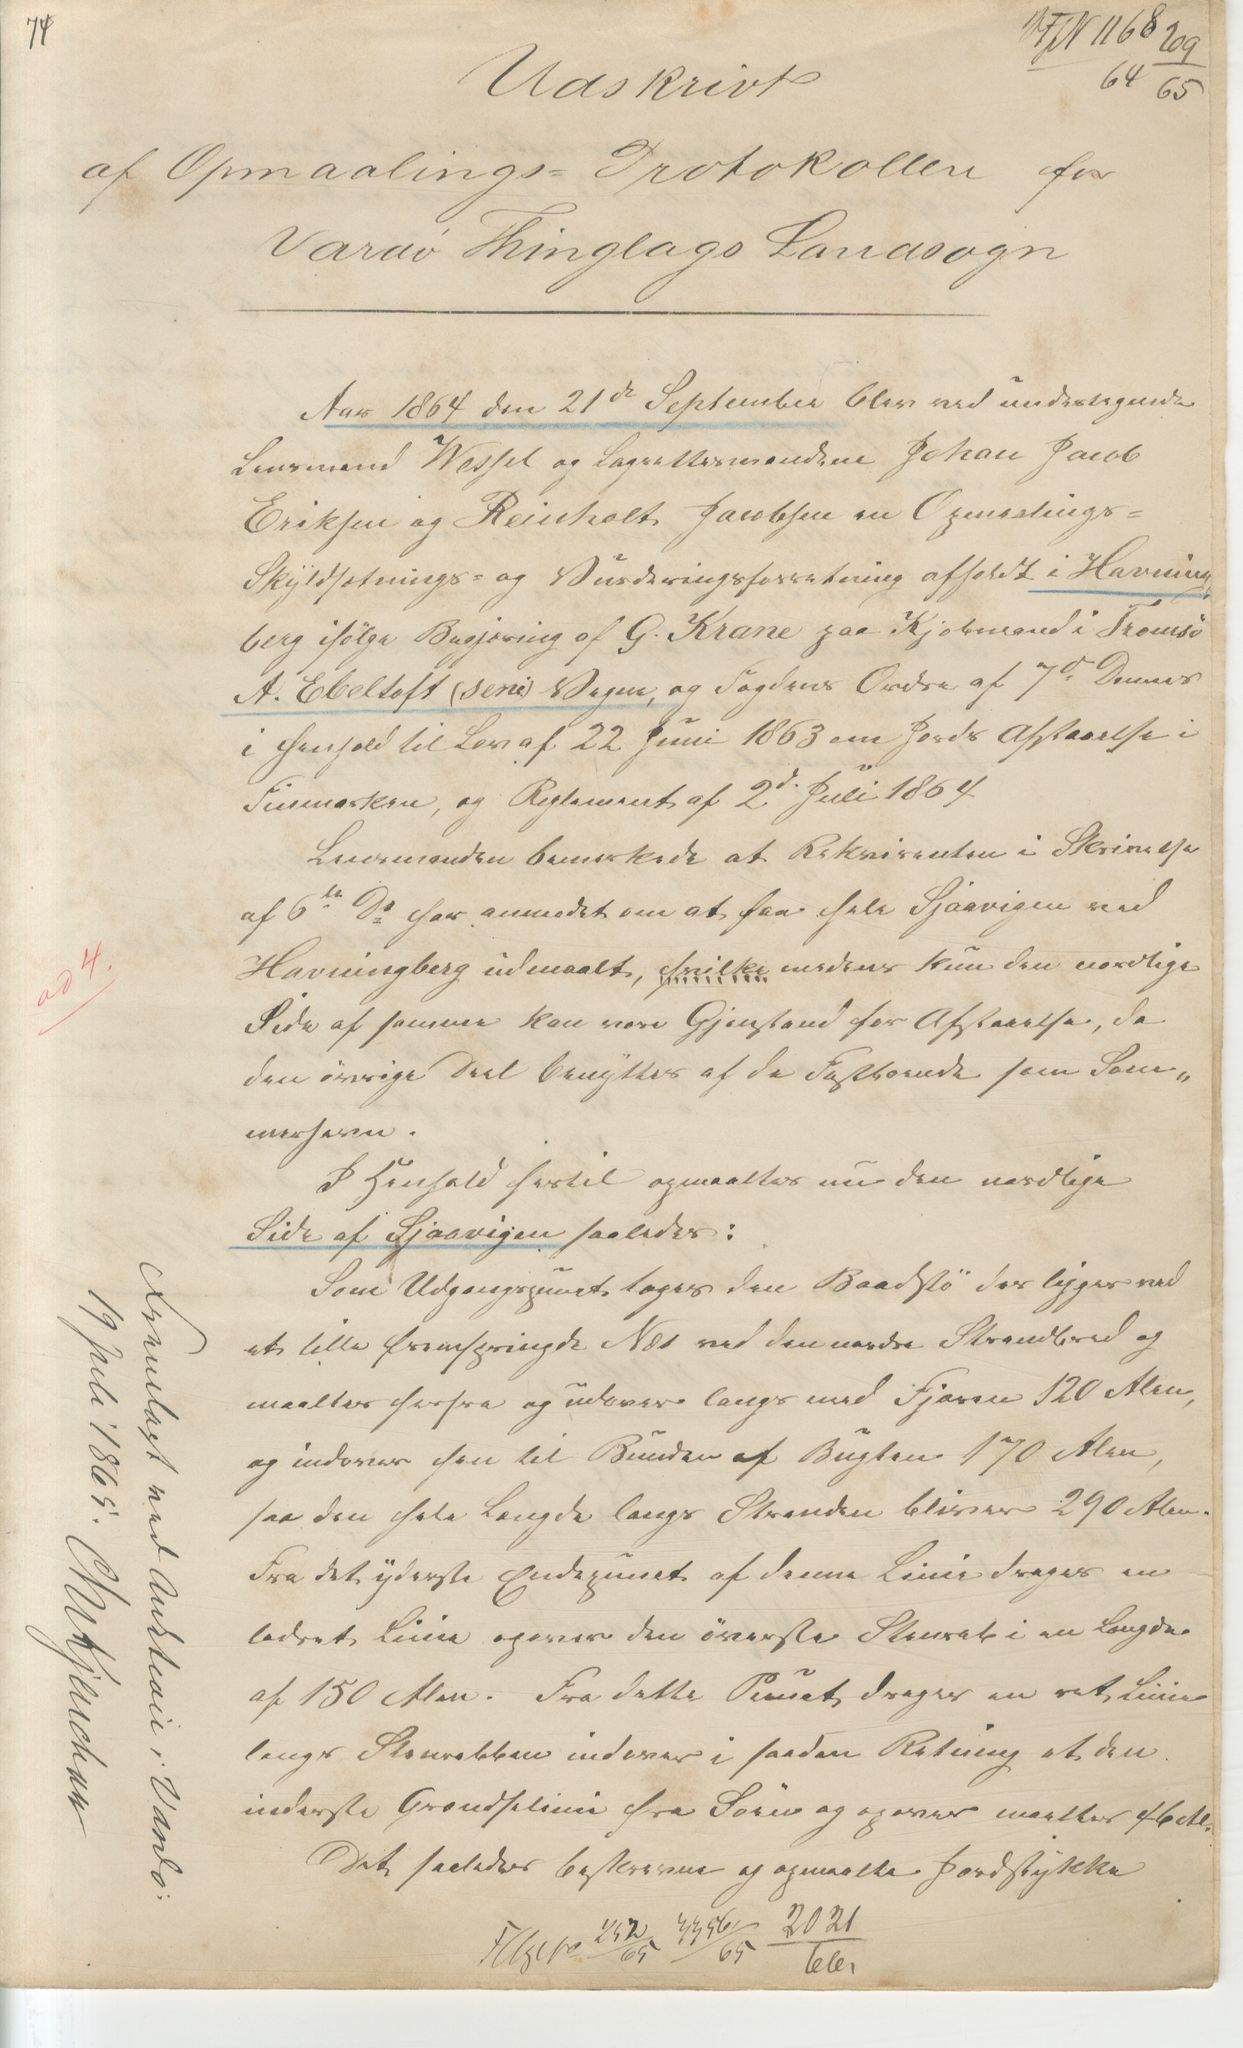 74
JN 1168 209
64 65
Udskrivt
af Opmaalings-Protokollen for
Vardö Thinglags Landsogn
Aar 1864 den 21de September blev ved undertegnede
Lensmand Wessel og Lagrettesmændene Johan Jacob
Eriksen og Reinholt Jacobsen en Opmaalings-
Skyldsætnings- og Vurderingsforretning afholdt i Havning
berg ifølge Begjæring af G. Krane paa Kjøbmand i Tromsö
A. Ebeltoft (seni) Vegne, og Fogdens Ordre af 7d Dennes
i Henhold til Lov af 22 Juni 1863 om Jords Afstaaelse i
Finmarken, og Reglement af 2d. Juli 1864
Lensmanden bemærkede at Rekvirenten i Skrivelse
af 6te Ds har anmodet om at faa hele Sjaavigen ved
Havningberg udmaalt, hvilke medens kun den nordlige
Side af samme kan være Gjenstand for Afstaaelse, da
den övrige Deel benyttes af de Fastboende som Som„
merhavn.
I Henhold hertil opmaaltes nu den nordlige
Side af Sjaavigen saaledes:
Som Udgangspunct toges den Baadstö der ligger ved
et lille fremspringde Næs ved den nordre Strandbred og
maaltes herfra og udover langs med Fjæren 120 Alen,
og indover hen til Bunden af Bugten 170 Alen,
saa den hele Længde langs Stranden bliver 290 Alen.
Fra det yderste Endepunct af denne Linie drages en
lodret Linie opover den överste Stenrab i en Længde
af 150 Alen. Fra dette Punct drages en ret Linie
langs Stenrabben indover i saadan Retning at den
inderste Grændselinie fra Söen og opover maaltes 46 Al.
Det saaledes beskrevne og opmaalte Jordstykke
ad 4.
Fremlagt ved Auktion i Vardö:
19 Juli 1865.
252/65 2021